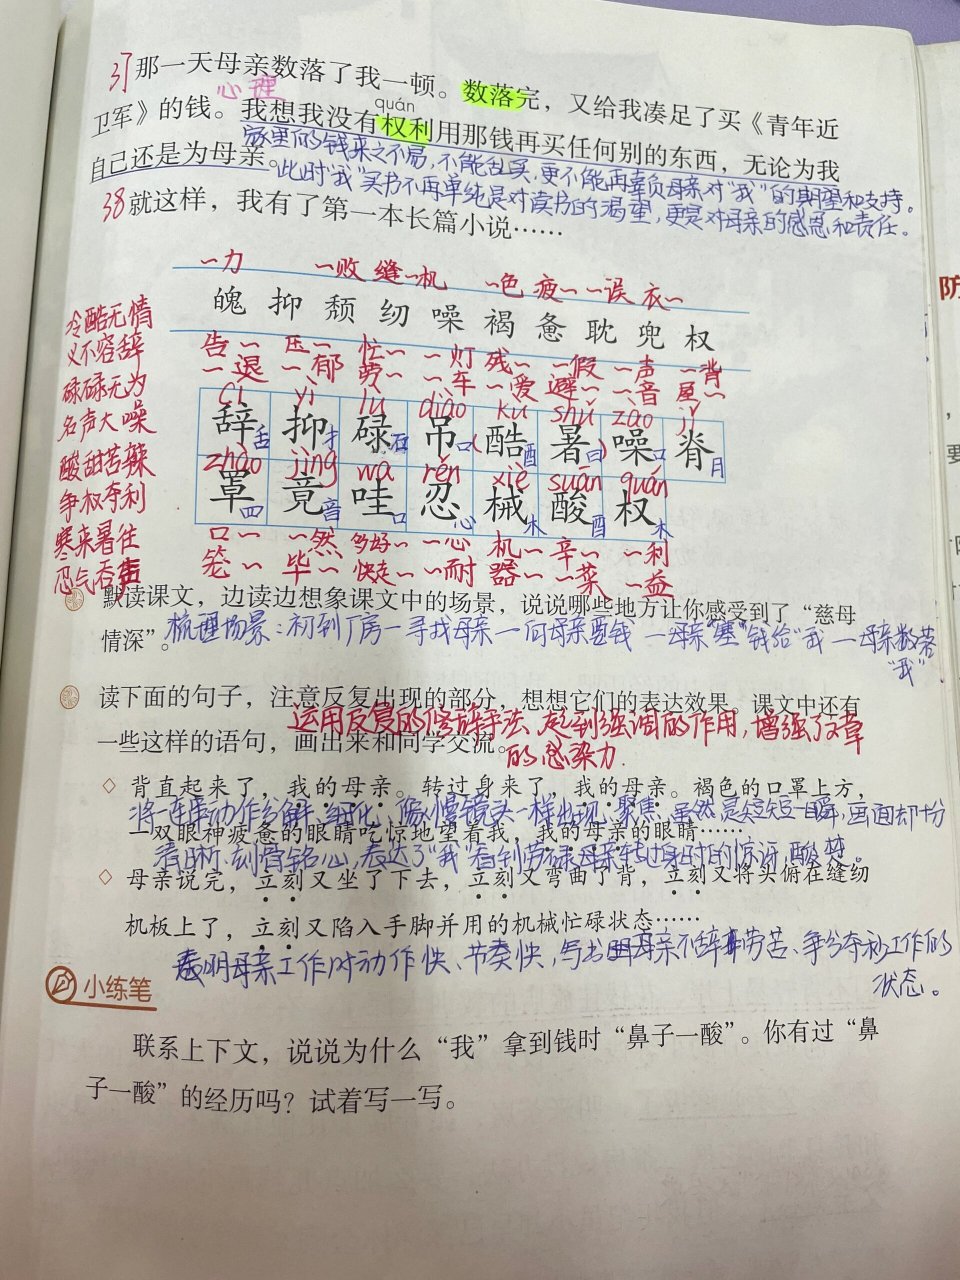 37 那一天母亲数落了我一顿。数落完，又给我凑足了买《青年近
心理
quán
卫军》的钱。我想我没有权利用那钱再买任何别的东西，无论为我
家里的钱来之不易，不能乱买，更不能再辜负母亲对“我”的期望和支持。
自己还是为母亲。
此时“我”买书不再单纯是对读书的渴望，更是对母亲的感恩和责任。
38 就这样，我有了第一本长篇小说……
~力 ~败 缝~机 ~色 疲~ ~误 衣~
魄 抑 颓 纫 噪 褐 惫 耽 兜 权
冷酷无情
义不容辞
碌碌无为
名声大噪
酸甜苦辣
争权夺利
寒来暑往
忍气吞声
告~ 压~ 忙~ ~灯 残~ ~假 ~声 ~背
~退 ~郁 劳~ ~车 ~爱 避~ ~音 屋~
cí yì lù diào kù shǔ zào jǐ
辞舌 抑扌 碌石 吊口 酷酉 暑日 噪口 脊月
zhào jìng wa rěn xiè suān quán
罩四 竟音 哇口 忍心 械木 酸酉 权木
口~ ~然 多好~ ~心 机~ 辛~ ~利
笼~ 毕~ 快走~ ~耐 器~ ~菜 ~益
默读课文，边读边想象课文中的场景，说说哪些地方让你感受到了“慈母
情深”。
梳理场景：初到厂房—寻找母亲—向母亲要钱—母亲“塞”钱给“我”—母亲数落
“我”
读下面的句子，注意反复出现的部分，想想它们的表达效果。课文中还有
运用反复的修辞手法，起到强调的作用，增强了文章
一些这样的语句，画出来和同学交流。
的感染力.
背直起来了，我的母亲。转过身来了，我的母亲。褐色的口罩上方，
将一连串动作分解、细化，像慢镜头一样出现，聚焦，虽然是短短一瞬，画面却十分
一双眼神疲惫的眼睛吃惊地望着我，我的母亲的眼睛……
清晰、刻骨铭心，表达了“我”看到劳碌母亲转过身时的惊讶，酸楚。
母亲说完，立刻又坐了下去，立刻又弯曲了背，立刻又将头俯在缝纫
机板上了，立刻又陷入手脚并用的机械忙碌状态……
表明母亲工作时动作快、节奏快，写出母亲不辞劳苦、争分夺秒工作的
状态。
小练笔
联系上下文，说说为什么“我”拿到钱时“鼻子一酸”。你有过“鼻
子一酸”的经历吗？试着写一写。
防
，
要